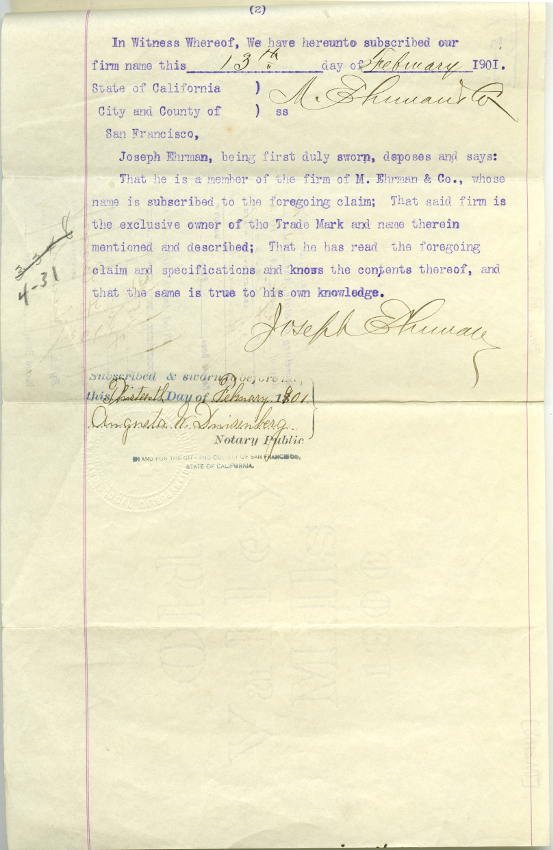 (2)
In Witness Whereof, We have hereunto subscribed our
firm name this 13th day of February 1901.
State of California )
M. Ehrman & Co
City and County of ) ss
San Francisco,
Joseph Ehrman, being first duly sworn, deposes and says:
That he is a member of the firm of M. Ehrman & Co., whose
name is subscribed to the foregoing claim; That said firm is
the exclusive owner of the Trade Mark and name therein
mentioned and described; That he has read the foregoing
claim and specifications and knows the contents thereof, and
that the same is true to his own knowledge.
4-31
Joseph Ehrman
Subscribed & sworn to before me,
this Thirteenth Day of February 1901
Notary Public
IN AND FOR THE CITY AND COUNTY OF SAN FRANCISCO,
STATE OF CALIFORNIA.